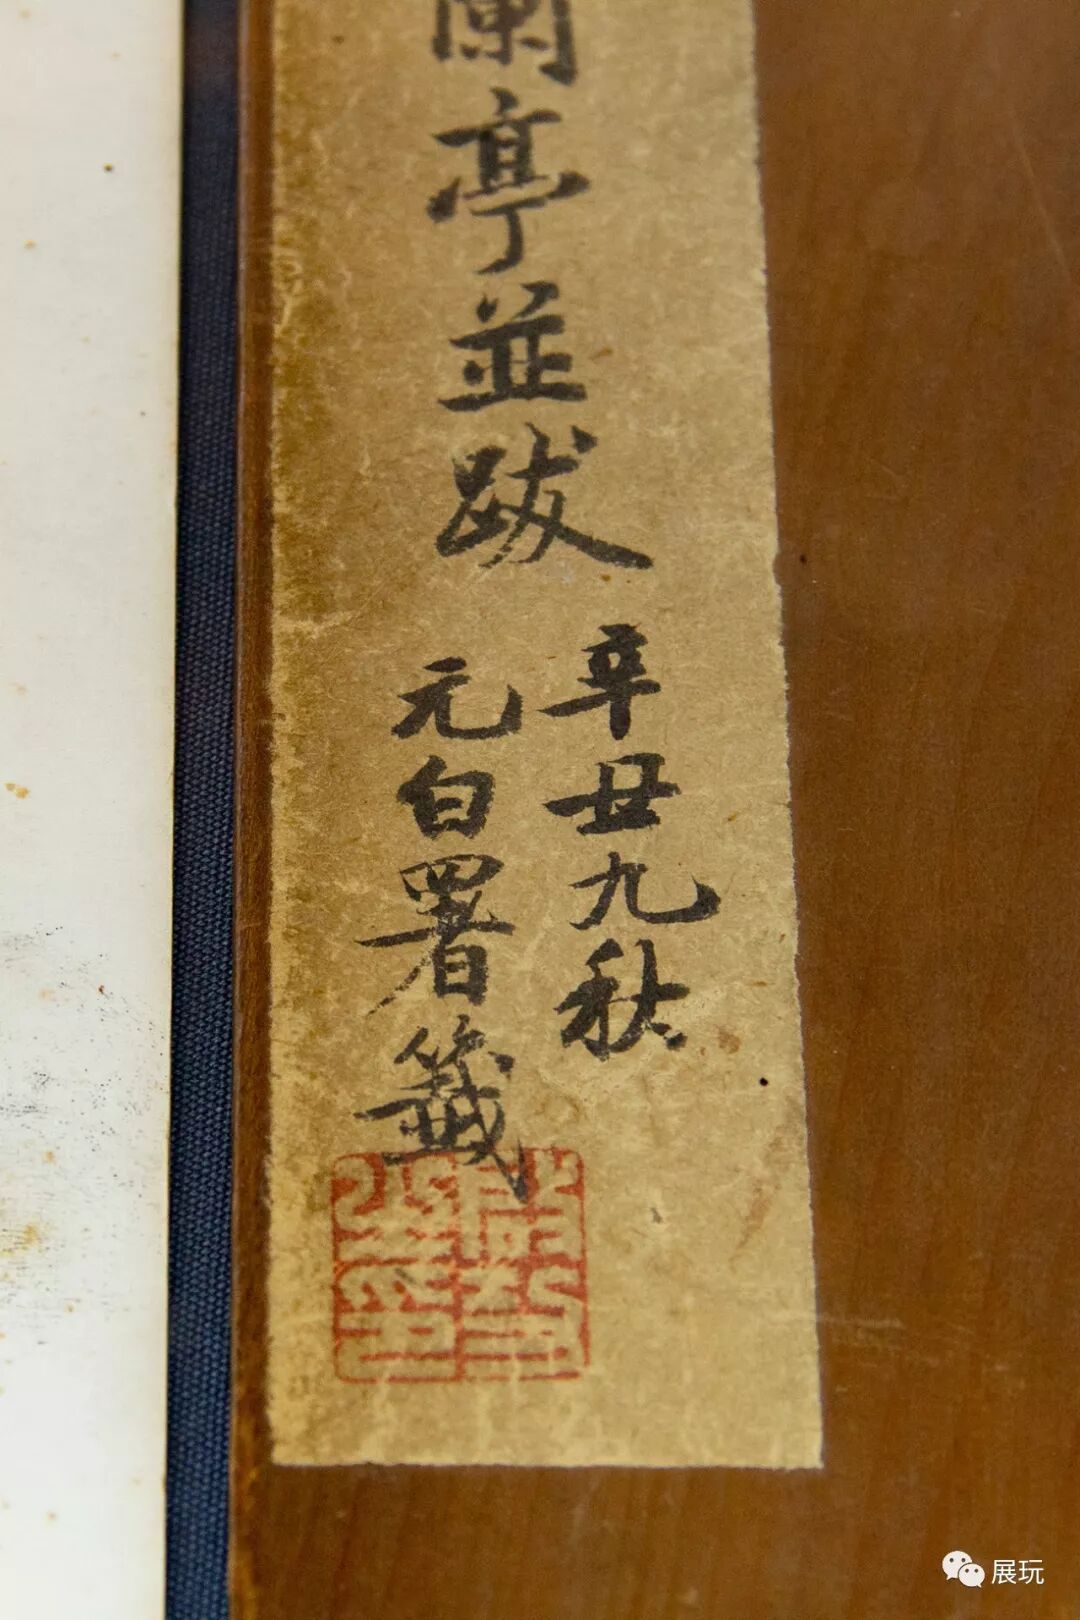 蘭亭並跋
辛丑九秋
元白署籤
展玩